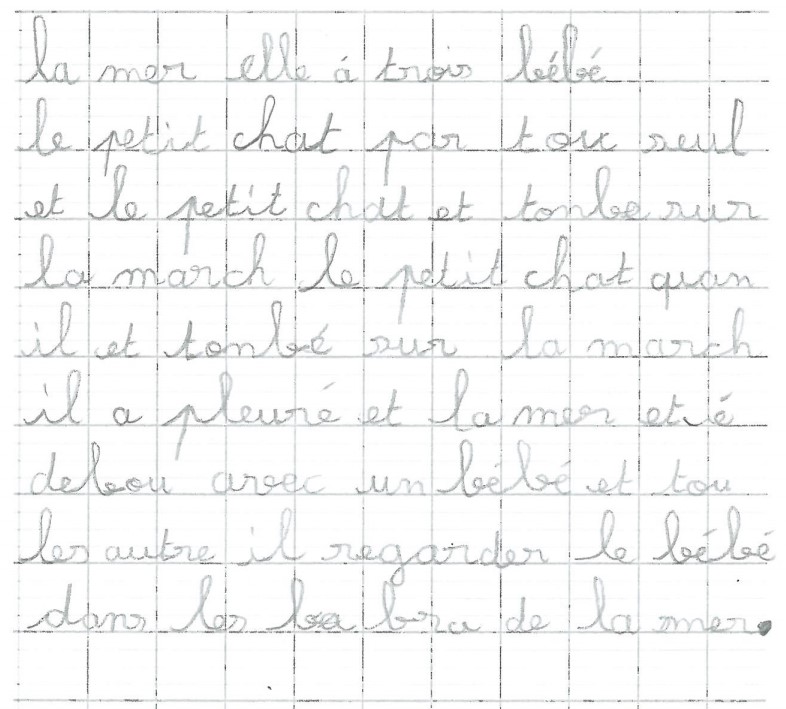 la mer elle á trois bébé
le petit chat par tou seul
et le petit chat et tombe sur
la march le petit chat quan
il et tonbé sur la march
il a pleuré et la mer et é
debou avec un bébé et tou
les autre il regarder le bébé
dans les bra de la mer.